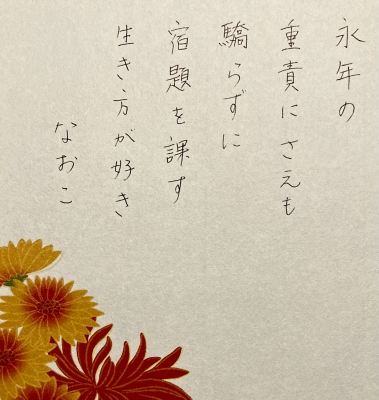 永年の
重責にさえも
驕らずに
宿題を課す
生き方が好き
なおこ